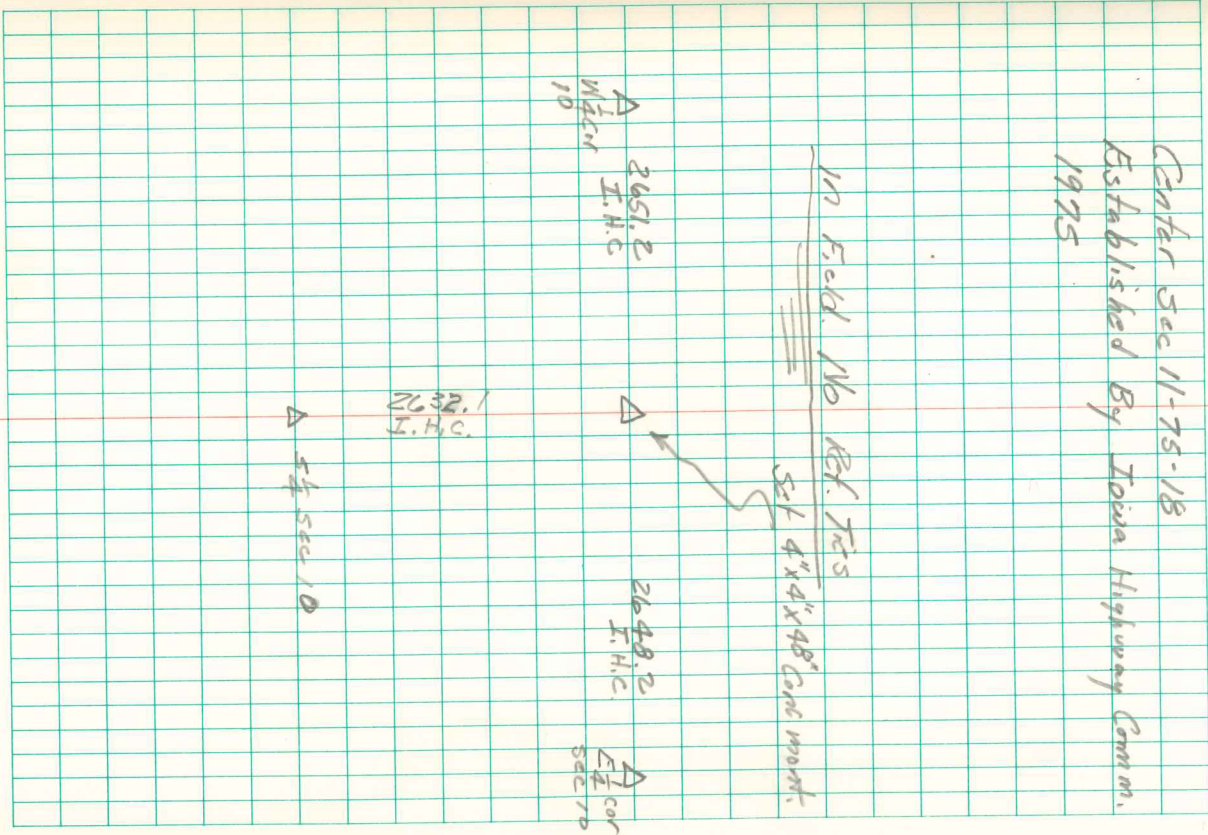 Center Sec 11-75-18
Established By Iowa Highway Comm.
1975
In Field. No Ref. Ties
Set 4"x4"x48" Conc mont.
2651.2
I.H.C
W 1/4 Cor
10
2648.2
I.H.C.
E 1/4 cor
sec 10
2632.1
I.H.C.
S 1/4 sec 10